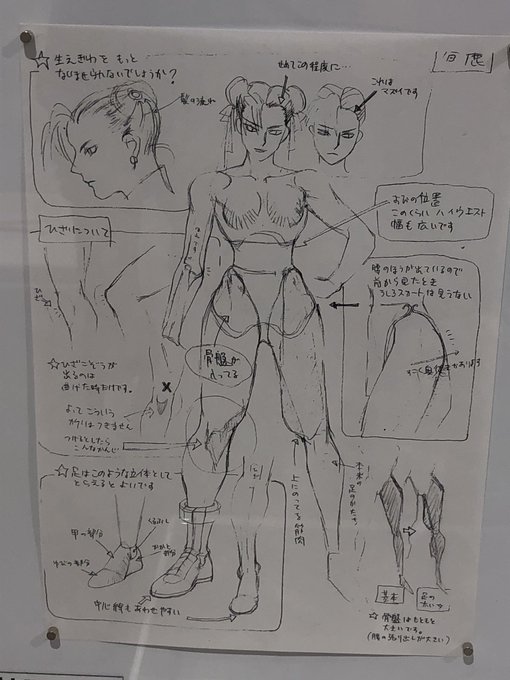 ☆生えぎわをもっと
なじませられないでしょうか?
髪の流れ
せめてこの程度に…
これは
マズイです
春麗
おびの位置
このくらいハイウエスト
幅も広いです
ひざについて
ひざ
腰のほうが出ているので
前から見たとき
うしろスカートは見えない
すごく奥行きがあります
骨盤が
入ってる
☆ひざこぞうが
出るのは
曲げた時だけです。
X
よってこういう
つけるとしたら
こんなかんじ
☆足はこのような立体として
とらえるとよいです
甲の部分
くるぶし
かかと部分
ゆびの部分
中心線もあわせやすい
上にのってる筋肉
本来の足のかたち
基本
足の
☆骨盤はもともと
大きいです。
(腰の張り出しが大きい)